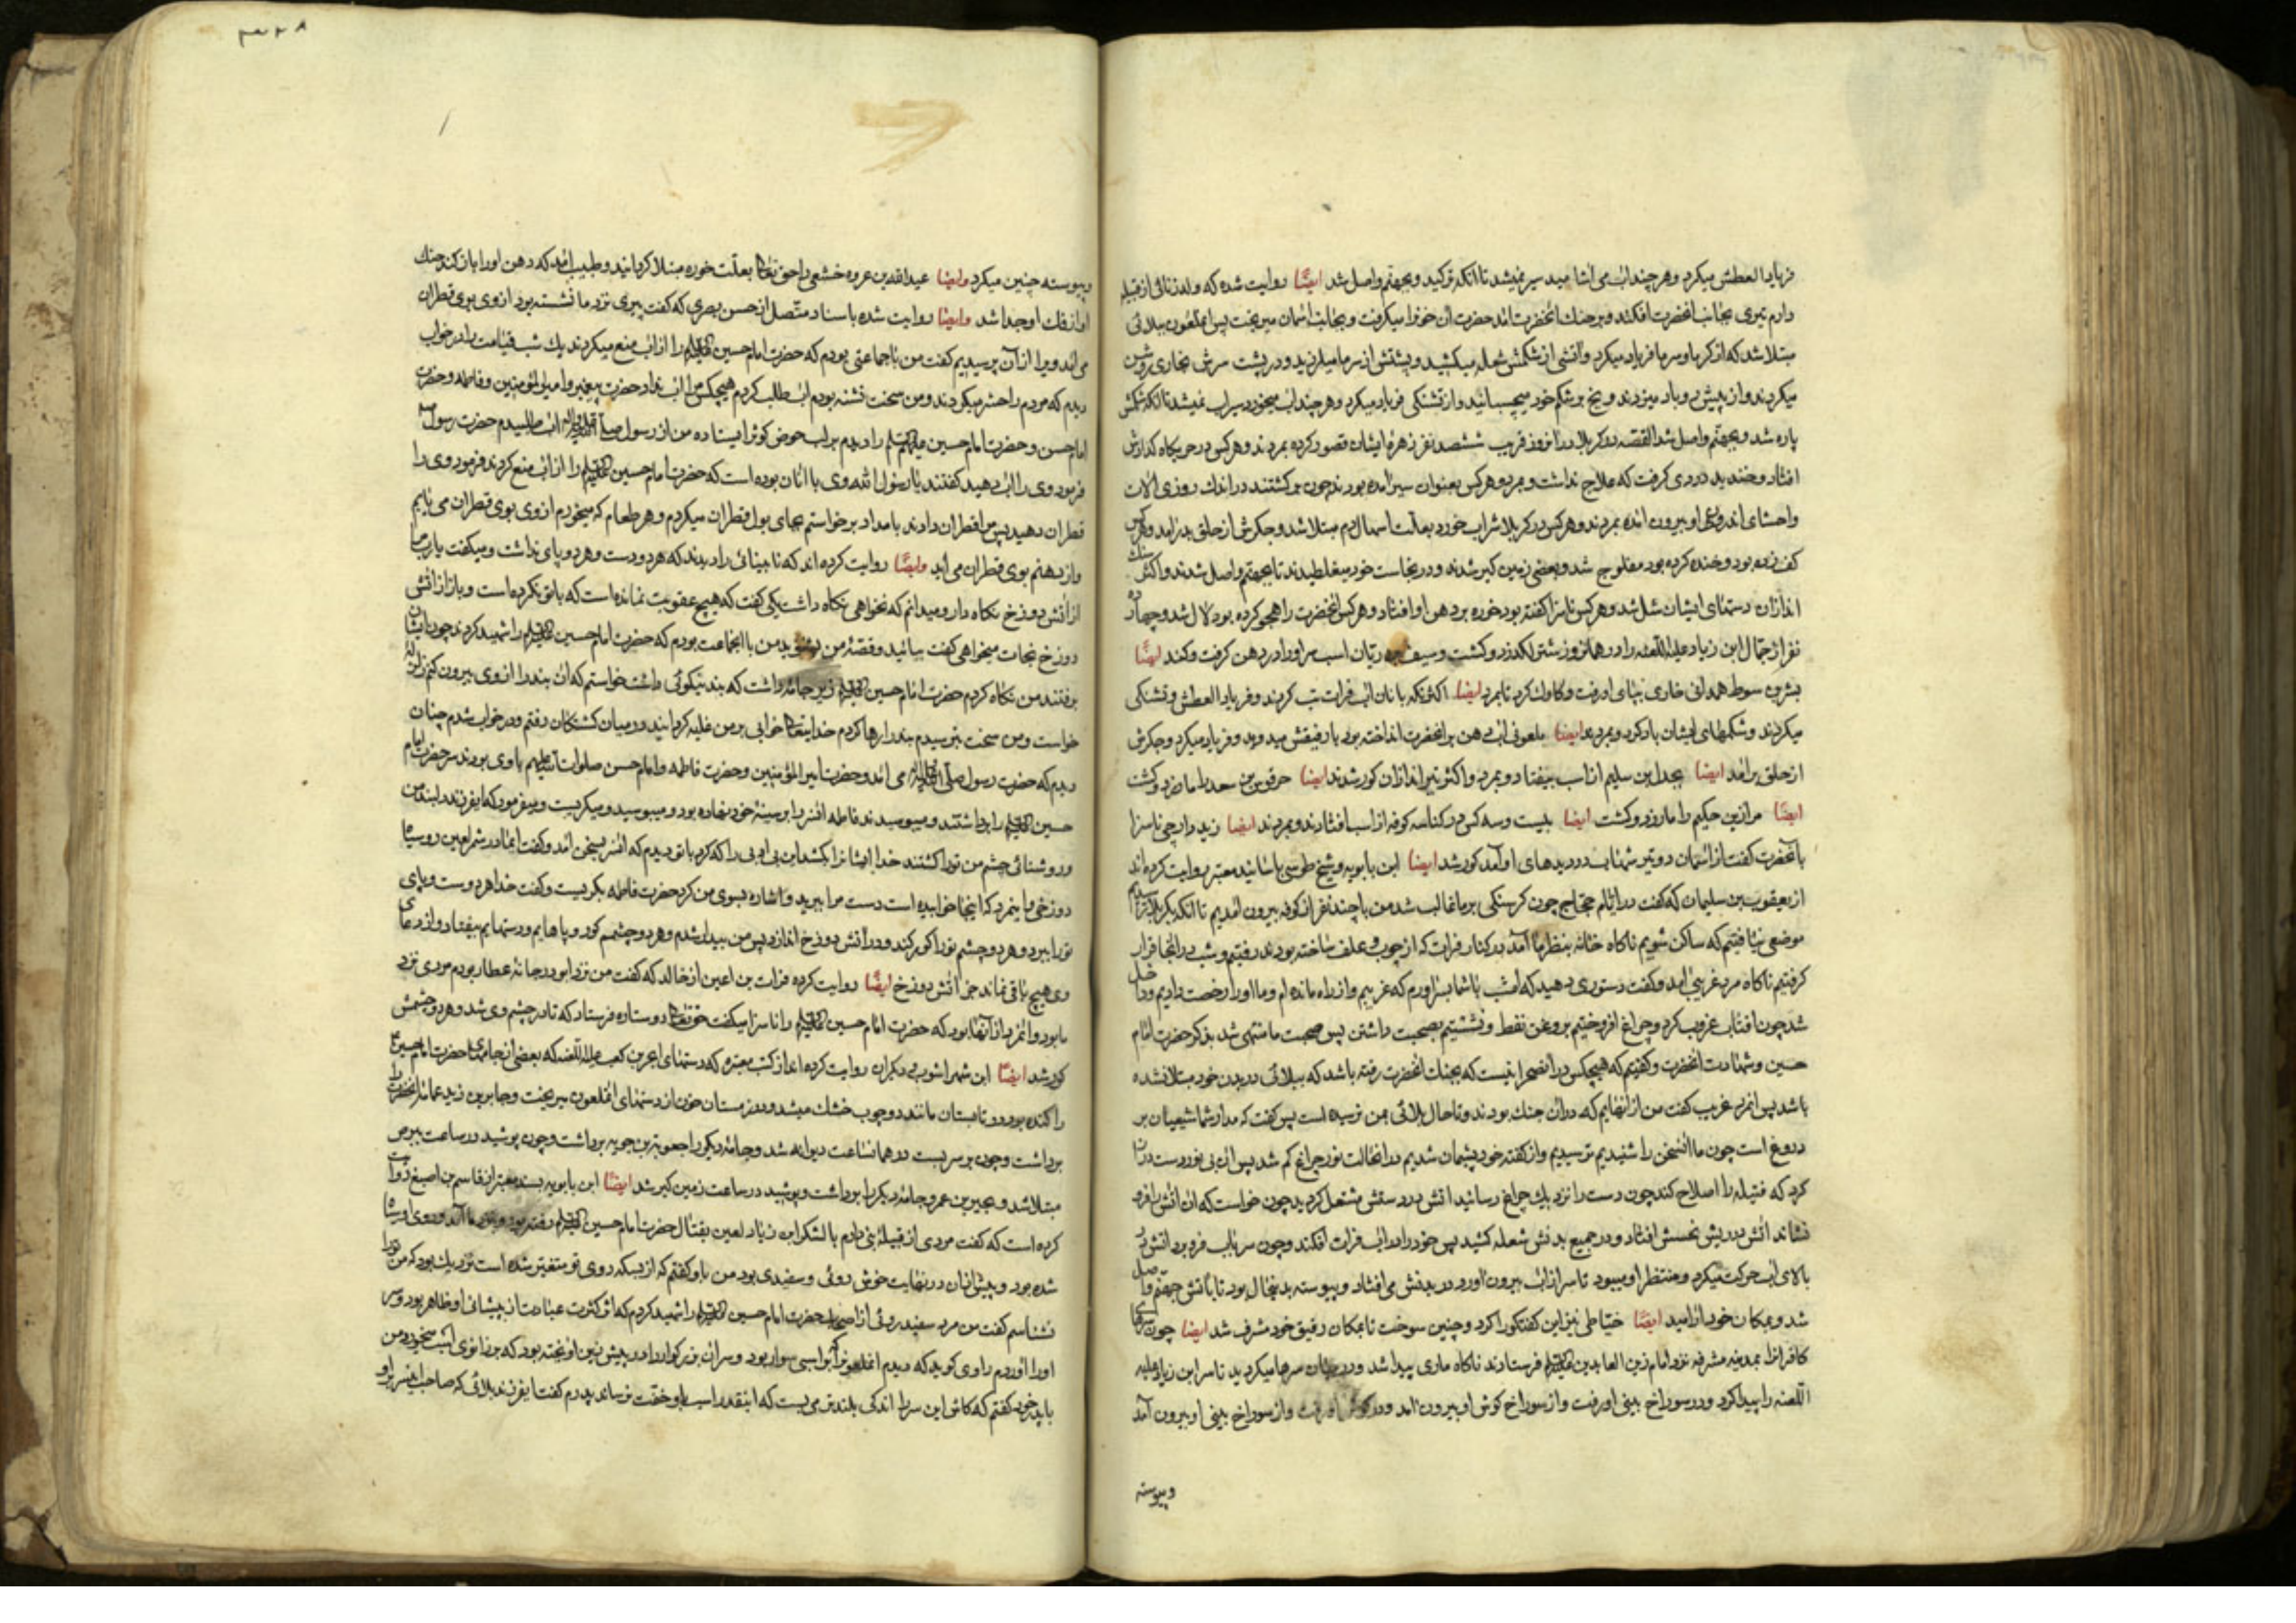 فریاد العطش میکرد و هر چند آب می آشامید سیر نمیشد تا آنکه ترکید و بجهنم واصل شد ایضًا روایت شده که ولد الزنائی از قبیله
دارم تیری بجانب آنحضرت افکند و بر حنک آنحضرت آمد حضرت آن خونرا میگرفت و بجانب آسمان میریخت پس آن ملعون ببلائی
مبتلا شد که از گرما و سرما فریاد میکرد و آتشی از شکمش شعله میکشید و پشتش از سرما میلرزید و در پشت سرش بخاری روشن
میکردند و از پیش رو باد میزدند و یخ بر شکم خود میچسبانید و از تشنگی فریاد میکرد و هر چند آب میخورد سیراب نمیشد تا آنکه شکمش
پاره شد و بجهنم واصل شد القصه در کربلا در آنروز قریب ششصد نفر زهرهٔ ایشان قصور کرده بمردند و هر کس در حربگاه گذارش
افتاد و خندید بدردی گرفت که علاج نداشت و مرد و هر کس بعنوان سیر آمده بودند چون برگشتند در اندک روزی آلات
و احشای اندرونی او بیرون آمده بمردند و هر کس در کربلا شراب خورد بعلت اسهال دم مبتلا شد و جگرش از حلق بدر آمد و هر کس
کف زده بود و خنده کرده بود مفلوج شد و بعضی زمین گیر شدند و در نجاست خود میغلطیدند تا بجهنم واصل شدند و اکثر سنک
اندازان دستهای ایشان شل شد و هر کس ناسزا گفته بود خوره بر دهن او افتاد و هر کس آنحضرت را هجو کرده بود لال شد و چهارده
نفر از جمال ابن زیاد علیه اللعنه را در همانروز شتر لگد زد و کشت و سیف بن ریّان اسب سر او را در دهن گرفت و کند ایضًا
بشر بن سوط همدانی خاری بپای او رفت و کاوان کرد تا بمرد ایضا اکثر آنکه با نان آب فرات تب کردند و فریاد العطش و تشنگی
میکردند و شکمهای ایشان باد کرد و بمردند ایضا ملعونی آب دهن بر آنحضرت انداخته بود با رفیقش میدوید و فریاد میکرد و جگرش
از حلق برآمد ایضا بجدل بن سلیم از اسب بیفتاد و بمرد و اکثر تیراندازان کور شدند ایضا حرقوص بن سعد را مار زد و کشت
ایضًا مراد بن حکیم را مار زد و کشت ایضا بیست و سه کس در کناسه کوفه از اسب افتادند و بمردند ایضا زید رادچی ناسزا
بآنحضرت گفت از آسمان دو تیر شهاب در دیدهای او آمد کور شد ایضا ابن بابویه و شیخ طوسی باسانید معتبر روایت کرده‌اند
از یعقوب بن سلیمان که گفت در ایام حجاج چون گرسنگی بر ما غالب شد من با چند نفر از کوفه بیرون آمدیم تا آنکه بکربلا رسیدیم
موضعی نیافتیم که ساکن شویم ناگاه خانه بنظر ما آمد در کنار فرات که از چوب و علف ساخته بودند رفتیم و شب در آنجا قرار
گرفتیم ناگاه مرد غریبی آمد و گفت دستوری دهید که امشب با شما بسر آورم که غریبم و از راه مانده‌ام و ما او را رخصت دادیم و داخل
شد چون آفتاب غروب کرد و چراغ افروختیم بروغن نفط و نشستیم بصحبت داشتن پس صحبت ما منتهی شد بذکر حضرت امام
حسین و شهادت آنحضرت و گفتیم که هیچکس در آنصحرا نیست که بجنک آنحضرت رفته باشد که ببلائی در بدن خود مبتلا نشده
باشد پس آنمرد غریب گفت من از آنهایم که در آن جنک بودند و تا حال بلائی بمن نرسیده است پس گفت که مدار شما شیعیان بر
دروغ است چون ما آنسخن را شنیدیم ترسیدیم و از گفته خود پشیمان شدیم در آنحالت نور چراغ کم شد پس آن بی نور دست دراز
کرد که فتیله را اصلاح کند چون دست را نزدیک چراغ رسانید آتش در دستش مشتعل گردید چون خواست که آن آتش را فرو
نشاند آتش در ریش نحسش افتاد و در جمیع بدنش شعله کشید پس خود را در آب فرات افکند و چون سر بآب فرو برد آتش در
بالای آب حرکت میکرد و منتظر او میبود تا سر از آب بیرون آورد در بدنش می افتاد و پیوسته بدینحال بود تا بآتش جهنم واصل
شد و بمکان خود آرامید ایضًا خیاطی نیز این گفتگو را کرد و چنین سوخت تا بمکان رفیق خود مشرف شد ایضا چون سرهای
کافرانرا بمدینه مشرفه نزد امام زین العابدین علیه السلام فرستادند ناگاه ماری پیدا شد و در میان سرها میگردید تا سر ابن زیاد علیه
اللعنه را پیدا کرد و در سوراخ بینی او رفت و از سوراخ گوش او بیرون آمد و در گوش او رفت و از سوراخ بینی او بیرون آمد
وپیوسته
۳۳۸
وپیوسته چنین میکرد وایضا عبدالله بن عروه خشعی را حق تعالی بعلت خوره مبتلا گردانید و طبیب آمد که دهن او را باز کند حنک
او از فک او جدا شد وایضا روایت شده باسناد متصل از حسن بصری که گفت پیری نزد ما نشسته بود از وی بوی قطران
می آمد ویرا از آن پرسیدیم گفت من باجماعتی بودم که حضرت امام حسین علیه السلام را از آب منع میکردند یک شب قیامت را در خواب
دیدم که مردم را حشر میکردند و من سخت تشنه بودم آب طلب کردم هیچکس مرا آب نداد حضرت پیغمبر و امیرالمؤمنین و فاطمه و حضرت
امام حسن و حضرت امام حسین علیهم السلام را دیدم بر لب حوض کوثر ایستاده من از رسول صلی الله علیه وآله آب طلبیدم حضرت رسول
فرمود وی را آب دهید گفتند یا رسول الله وی با آنان بوده است که حضرت امام حسین علیه السلام را از آب منع کردند فرمود وی را
قطران دهید پس مرا قطران دادند بامداد برخواستم بجای بول قطران میکردم و هر طعام که میخورم از وی بوی قطران می یابم
و از دهنم بوی قطران می آید وایضًا روایت کرده اند که نابینائی را دیدند که هر دو دست و هر دو پای نداشت و میگفت یارب مرا
از آتش دوزخ نگاه دار و میدانم که نخواهی نگاه داشت یکی گفت که هیچ عقوبت نمانده است که باتو نکرده است و باز از آتش
دوزخ نجات میخواهی گفت بیائید و قصهٔ من بشنوید من با آنجماعت بودم که حضرت امام حسین علیه السلام را شهید کردند چون ایشان
برفتند من نگاه کردم حضرت امام حسین علیه السلام زیر جامه داشت که بند نیکوئی داشت خواستم که آن بند را از وی بیرون کنم
خواست و من سخت بترسیدم بند را رها کردم خدایتعالی خوابی بر من غلبه گردانید در میان کشتگان رفتم و در خواب شدم چنان
دیدم که حضرت رسول صلی الله علیه وآله می آمد و حضرت امیرالمؤمنین و حضرت فاطمه و امام حسن صلوات الله علیهم باوی بودند سر حضرت امام
حسین علیه السلام را برداشتند و میبوسیدند فاطمه آنسر را بر سینهٔ خود نهاده بود و میبوسید و میگریست و میفرمود که ایفرزند دلبند من
و روشنائی چشم من تو را کشتند خدا ایشانرا بکشد این بی ادبی را که کرد باتو دیدم که آنسر بسخن آمد و گفت ایمادر شمر لعین روسیاه
دوزخی و اینمرد که اینجا خوابیده است دست مرا ببرید و اشاره بسوی من کرد حضرت فاطمه بگریست و گفت خدا هر دو دست و پای
تورا ببرد و هر دو چشم تورا کور کند و در آتش دوزخ اندازد پس من بیدار شدم و هر دو چشمم کور و پاهایم و دستهایم بیفتاد و از دعای
وی هیچ باقی نماند جز آتش دوزخ ایضًا روایت کرده فرات بن اعین از خالد که گفت من نزد ابو رجاء عطار بودم مردی نزد
ما بود و آنمرد از آنها بود که حضرت امام حسین علیه السلام را ناسزا میگفت حق تعالی دو ستاره فرستاد که تا در چشم وی شد و هر دو چشمش
کور شد ایضًا ابن شهر آشوب و دیگران روایت کرده اند از کتب معتبره که دستهای ابجر بن کعب علیه اللعنه که بعضی از جامهای حضرت امام حسین
را کنده بود در تابستان مانند دو چوب خشک میشد و در زمستان خون از دستهای آنملعون میریخت و جابر بن زید عمامهٔ آنحضرت را
برداشت و چون بر سر بست در همانساعت دیوانه شد و جامهٔ دیگر را جعوبة بن حویه برداشت و چون پوشید در ساعت ببرص
مبتلا شد و بحیر بن عمرو جامهٔ دیگر را برداشت و پوشید در ساعت زمین گیر شد ایضًا ابن بابویه بسند معتبر از قاسم بن اصبغ روایت
کرده است که گفت مردی از قبیلهٔ بنی دارم با لشکر ابن زیاد لعین بقتال حضرت امام حسین علیه السلام رفته بود و بنزد ما آمد و روی او سیاه
شده بود و پیش از آن در نهایت خوش روئی و سفیدی بود من باو گفتم که از بسکه روی تو متغیر شده است نزدیک بود که من تورا
نشناسم گفت من مرد سفید روئی از اصحاب حضرت امام حسین علیه السلام را شهید کردم که اثر کثرت عبادت از پیشانی او ظاهر بود و سر
او را آوردم راوی گوید که دیدم آنملعونرا بر اسبی سوار بود و سر آن بزرگوار را در پیش زین آویخته بود که بر زانوی اسب میخورد من
با پدر خود گفتم که کاش این سر را اندکی بلندتر می بست که اینقدر اسب باو خفت نرساند پدرم گفت ایفرزند بلائی که صاحب اینسر بر او